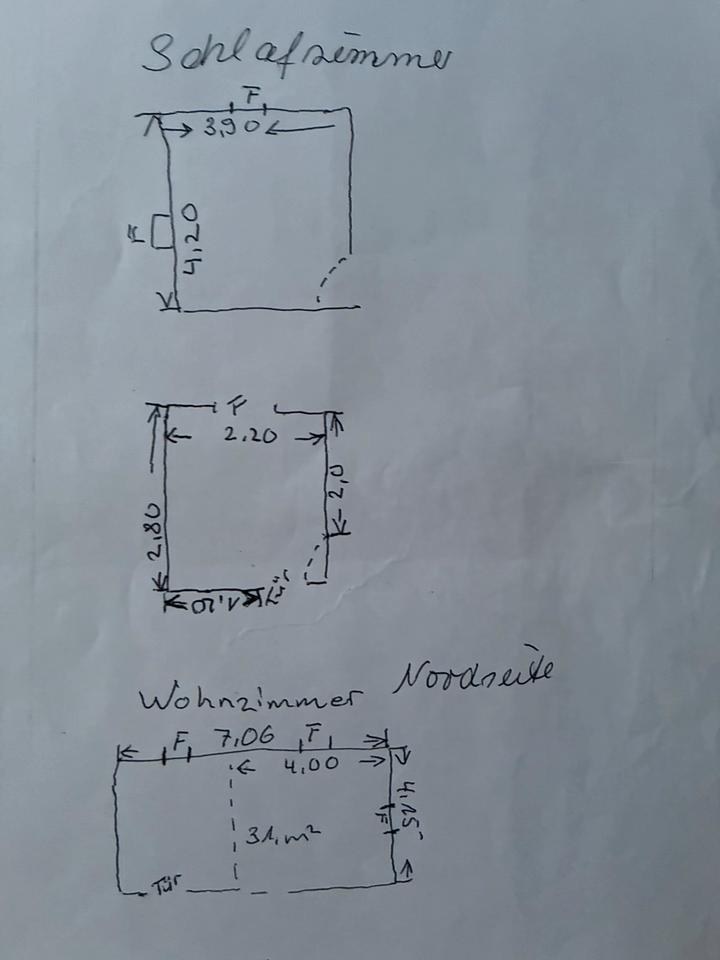 Schlafzimmer
F
3,90
F
4,20
F
2.20
2,0
2,80
Tür
1,10
Wohnzimmer Nordseite
F 7,06 F
4,00
4,15
F
31,m²
Tür